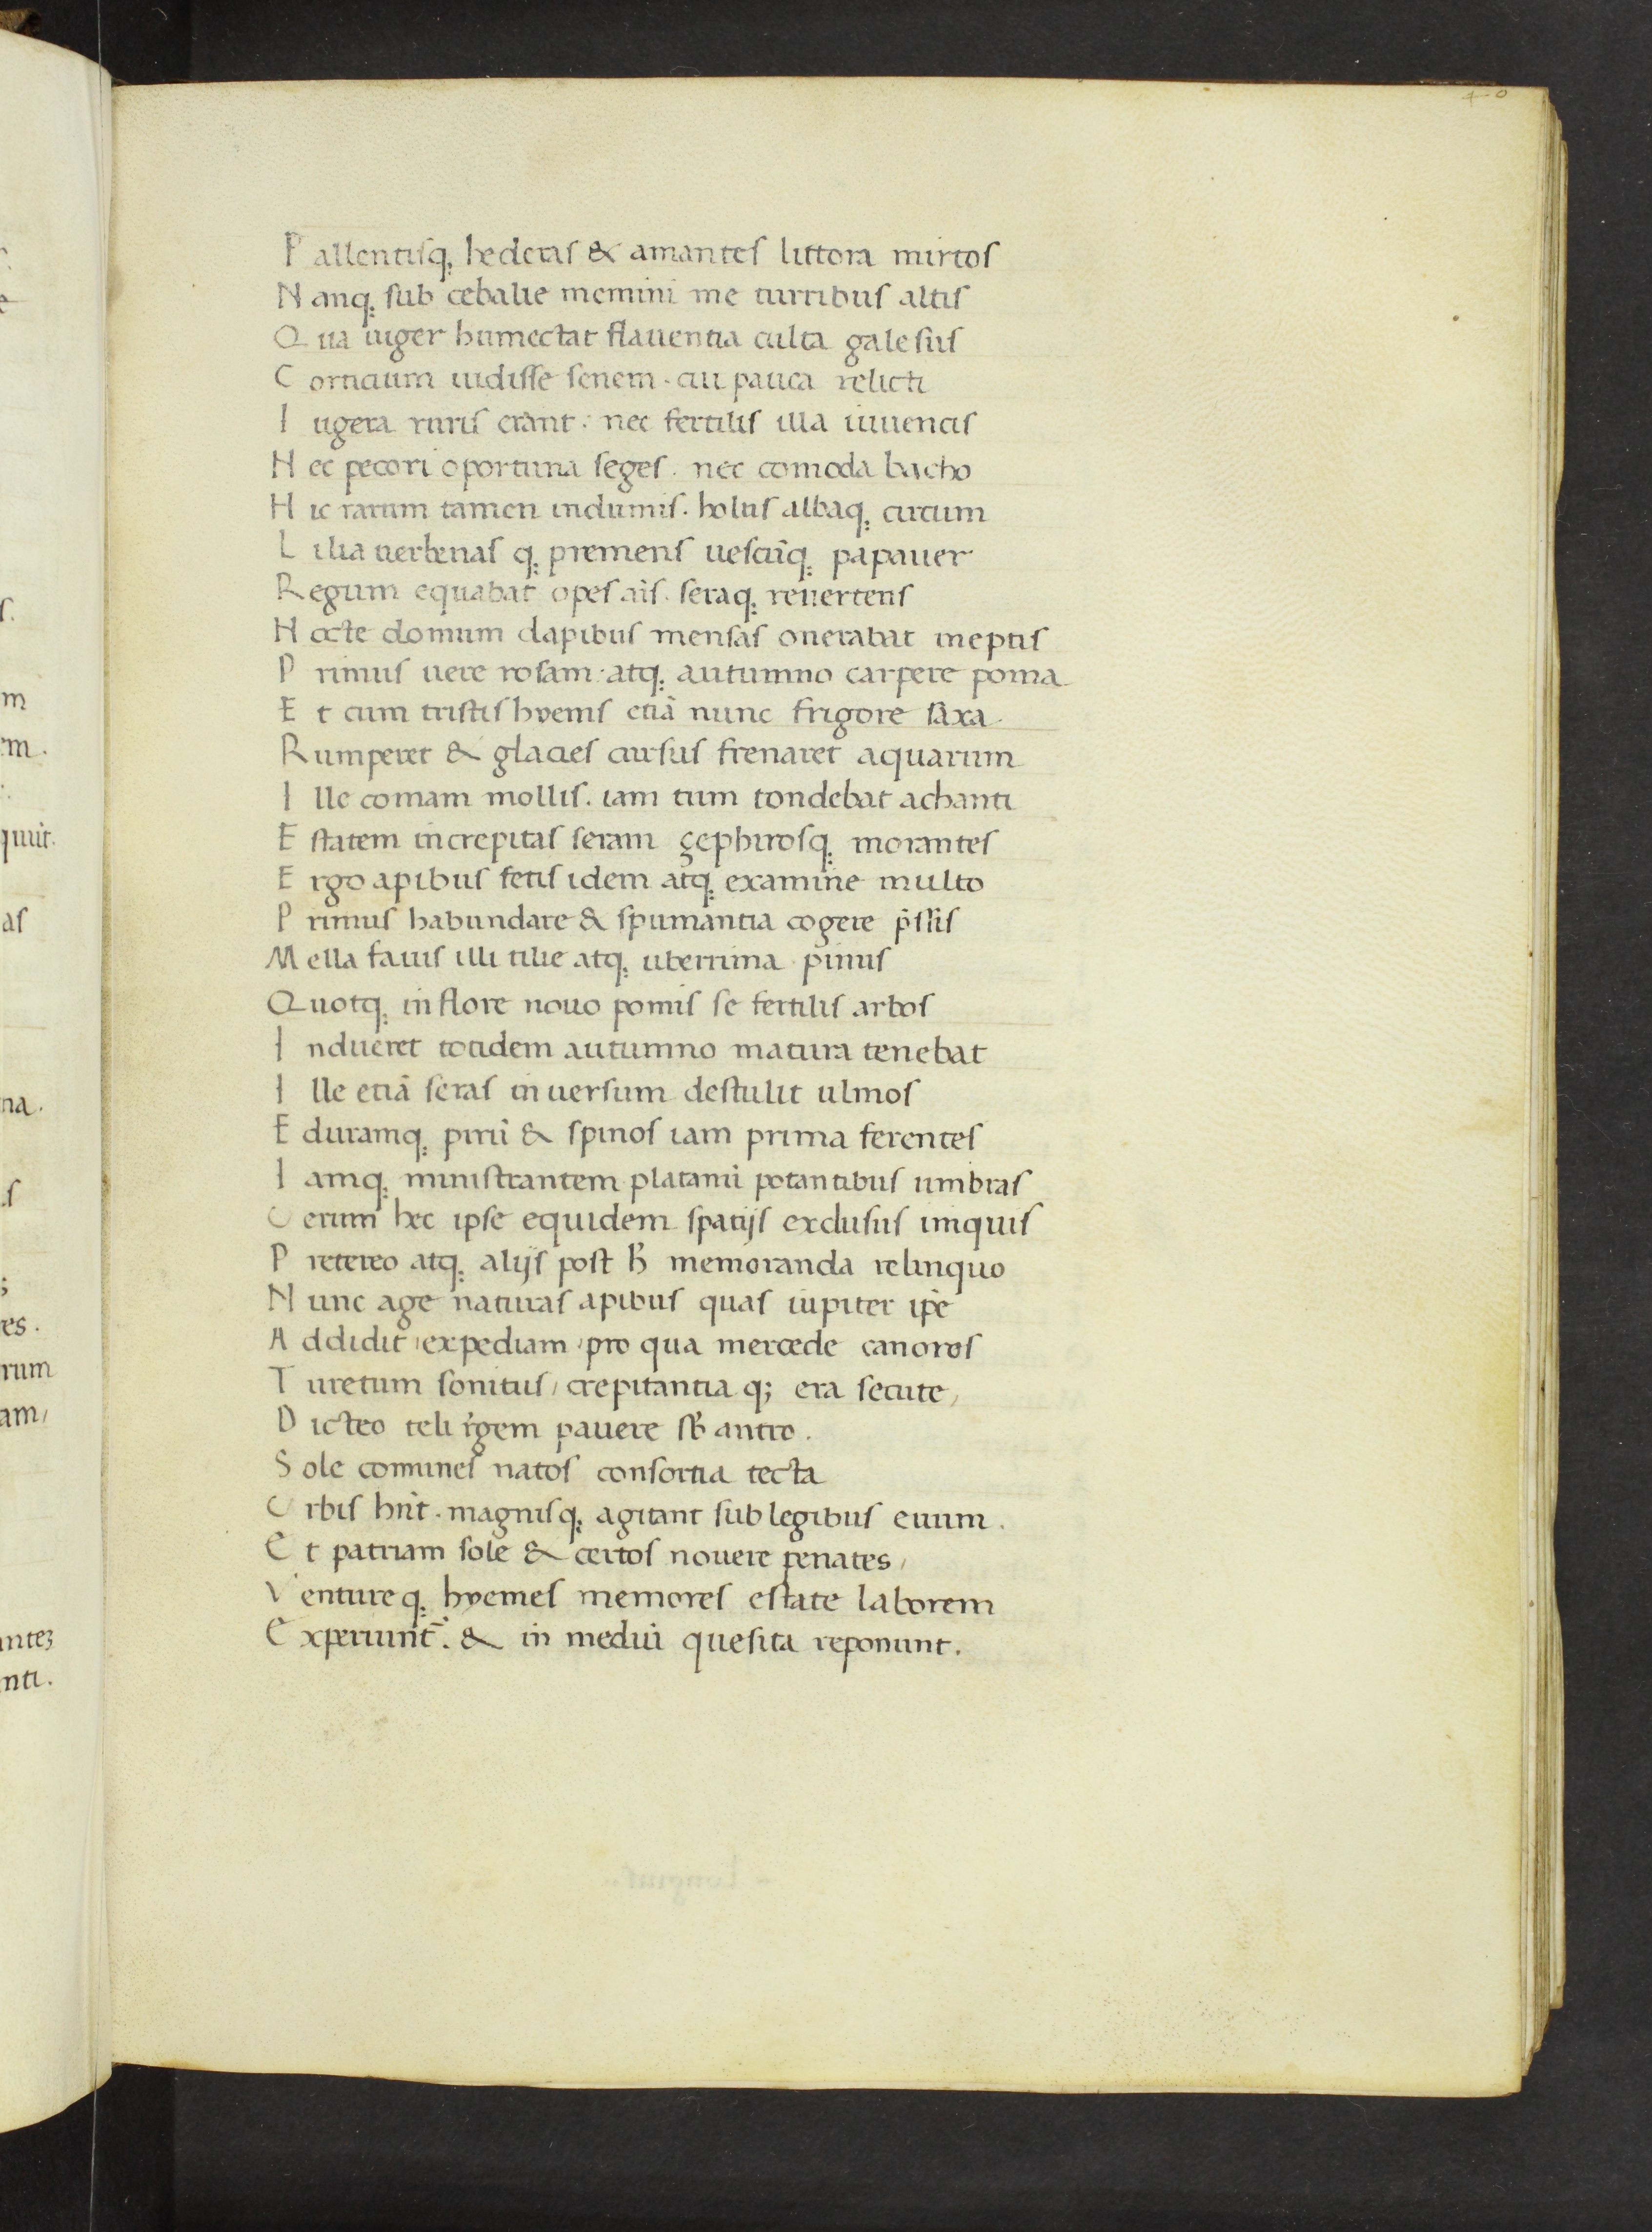 40
Pallentisq; hederas & amantes littora mirtos
Nanq; sub cebalie memini me turribus altis
Qua iuger humectat flauentia culta galesus
Corticium uidisse senem. cui pauca relicti
Iugera ruris erant: nec fertilis illa iuuencis
Nec pecori oportuna seges. nec comoda bacho
Hic rarum tamen indumis. holus albaq; circum
Lilia uerbenas q; premens uescũq; papauer
Regum equabat opes aĩs. seraq; reuertens
Nocte domum dapibus mensas onerabat ineptis
Primus uere rosam: atq; autumno carpere poma
Et cum tristis hyems etiã nunc frigore saxa.
Rumperet & glacies cursus frenaret aquarum
Ille comam mollis. iam tum tondebat achanti
Estatem increpitas seram çephirosq; morantes
Ergo apibus fetis idem atq; examine multo
Primus habundare & spumantia cogere p̃ssis
Mella fauis illi tilie atq; uberrima pinus
Quotq; in flore nouo pomis se fertilis arbos
Indueret totidem autumno matura tenebat
Ille etiã seras in uersum destulit ulmos
Eduramq; pirũ & spinos iam prima ferentes
Iamq; ministrantem platanũ potantibus umbras
Verum hec ipse equidem spatijs exclusus iniquis
Pretereo atq; alijs post h̃ memoranda relinquo
Nunc age naturas apibus quas iupiter ip̃e
Addidit / expediam / pro qua mercede canoros
Turetum sonitus / crepitantia q; era secute /
Dicteo celi r̃gem pauere sb̃ antro.
Sole comunes natos consortia tecta
Vrbis hñt. magnisq; agitant sub legibus euum.
Et patriam sole & certos nouere penates /
Ventureq; hyemes memores estate laborem
Experiunt̃. & in mediũ quesita reponunt.